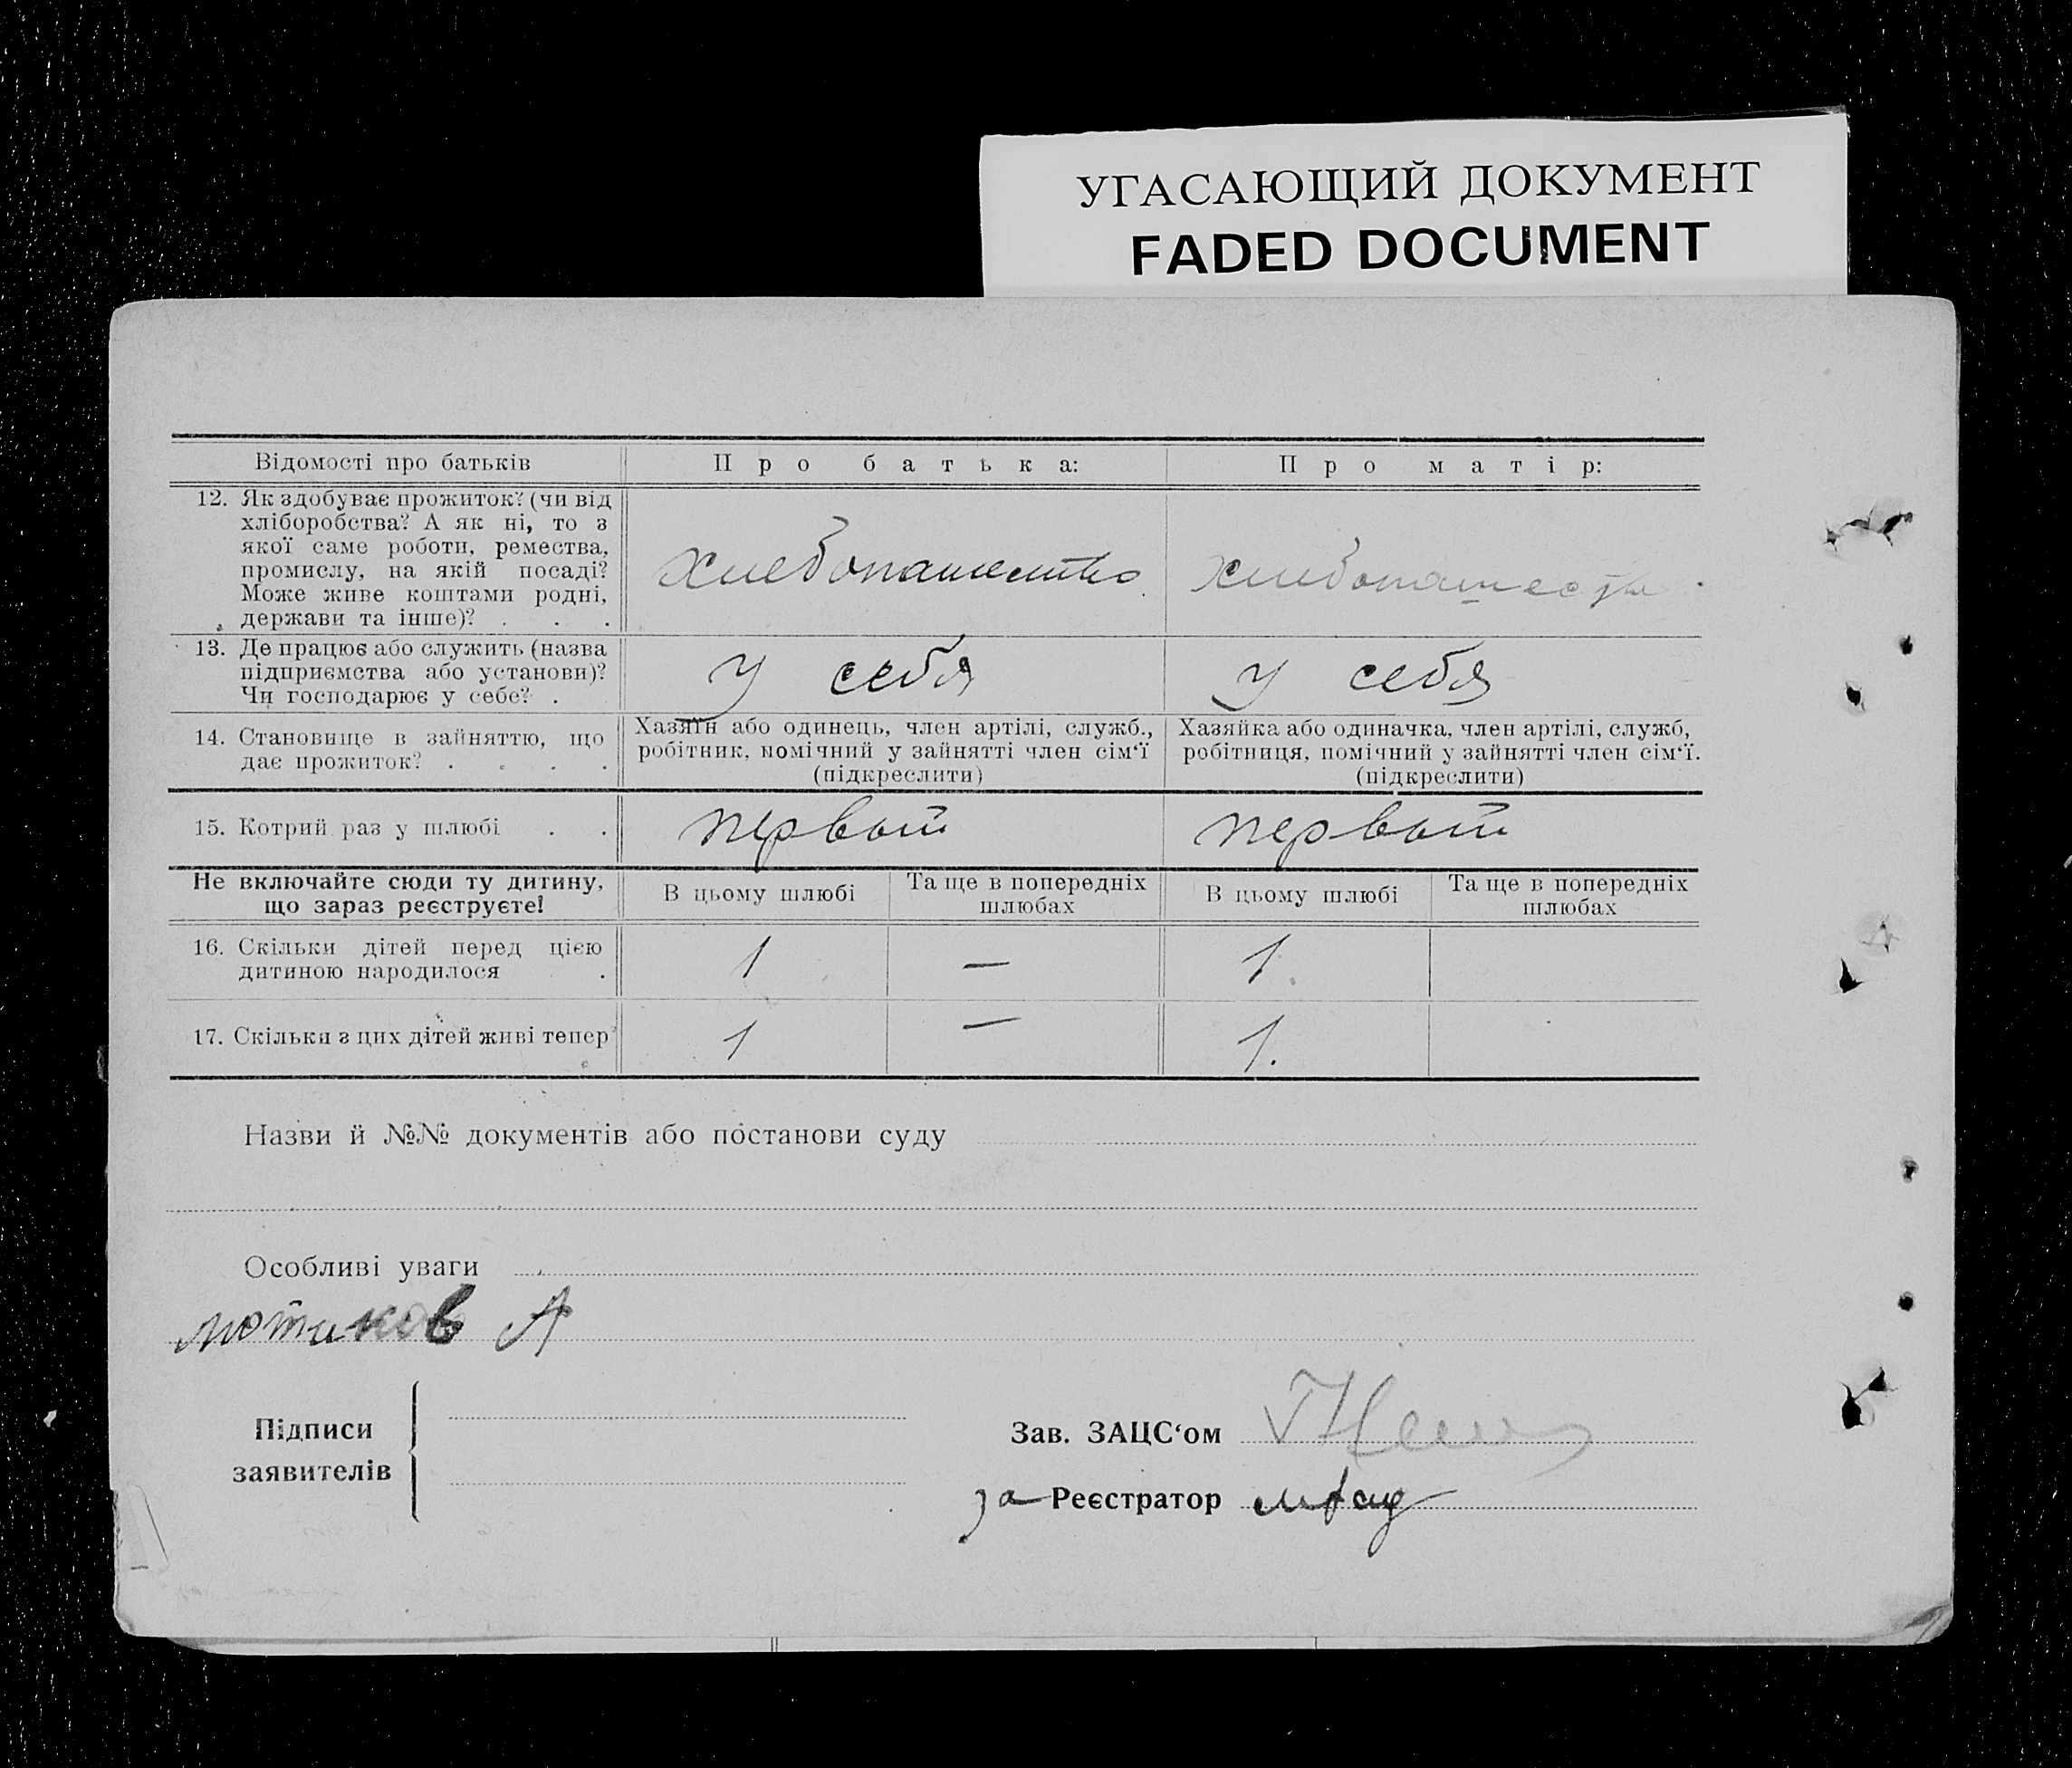 УГАСАЮЩИЙ ДОКУМЕНТ
FADED DOCUMENT
Відомості про батьків
Про батька:
Про матір:
12. Як здобуває прожиток? (чи від
хліборобства? А як ні, то з
якої саме роботи, ремества,
промислу, на якій посаді?
Може живе коштами родні,
держави та інше)? . . .
хлебопашество
хлебопашество
13. Де працює або служить (назва
підприємства або установи)?
Чи господарює у себе? .
у себя
у себя
14. Становище в зайняттю, що
дає прожиток? . . . .
Хазяїн або одинець, член артілі, служб.,
робітник, помічний у зайнятті член сім'ї
(підкреслити)
Хазяйка або одиначка, член артілі, служб,
робітниця, помічний у зайнятті член сім'ї.
(підкреслити)
15. Котрий раз у шлюбі . .
первый
первый
Не включайте сюди ту дитину,
що зараз реєструєте!
В цьому шлюбі
Та ще в попередніх
шлюбах
В цьому шлюбі
Та ще в попередніх
шлюбах
16. Скільки дітей перед цією
дитиною народилося .
1
—
1.
17. Скільки з цих дітей живі тепер
1
—
1.
Назви й №№ документів або постанови суду
Особливі уваги
мотиков А
Підписи
заявителів
Зав. ЗАЦС‘ом
за Реєстратор